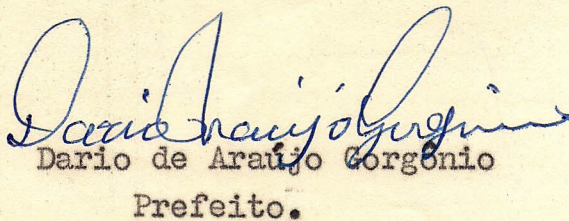 Dario Araujo Gorgônio
Dario de Araújo Gorgônio
Prefeito.